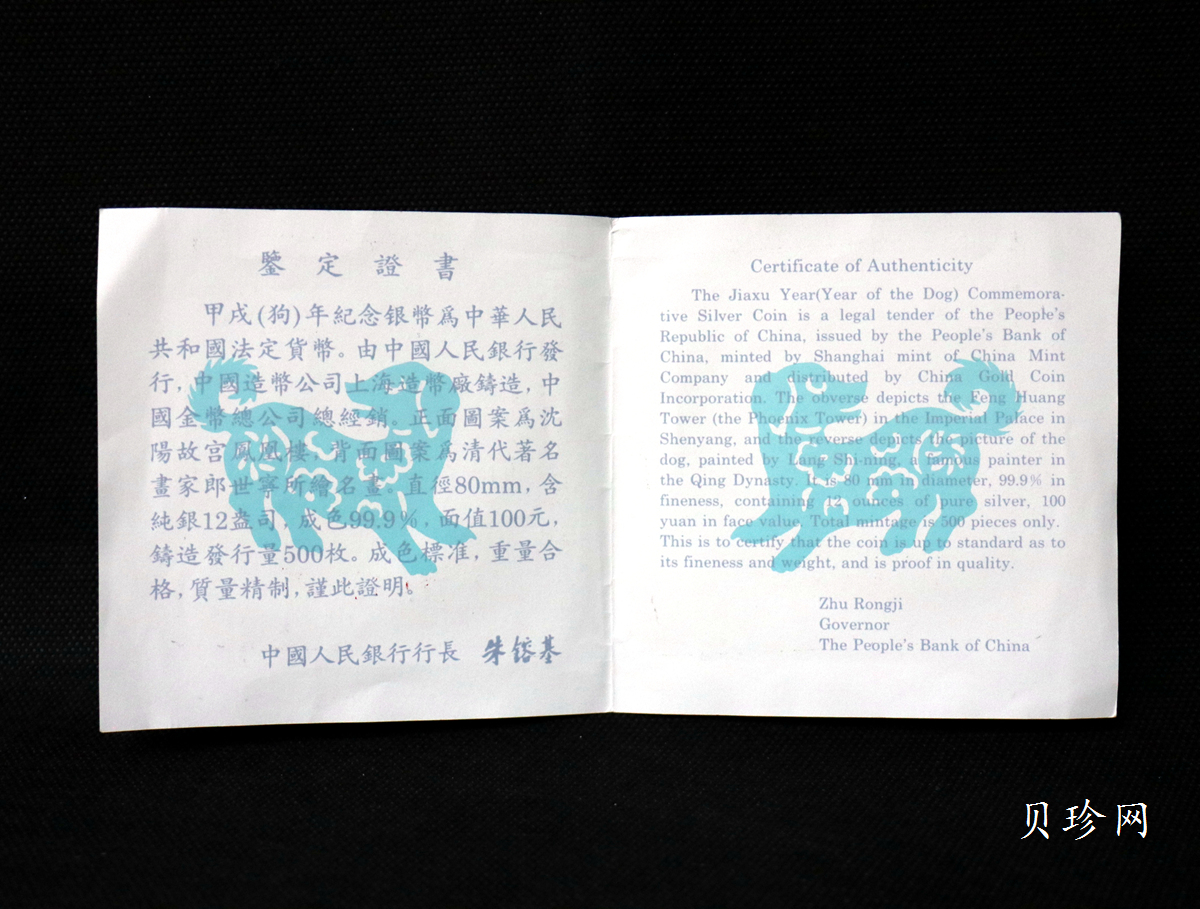 鑒定證書
甲戌(狗)年紀念銀幣爲中華人民
共和國法定貨幣。由中國人民銀行發
行,中國造幣公司上海造幣廠鑄造,中
國金幣總公司總經銷。正面圖案爲沈
陽故宮鳳凰樓,背面圖案爲清代著名
畫家郎世寧所繪名畫。直徑80mm,含
純銀12盎司,成色99.9%,面值100元,
鑄造發行量500枚。成色標准,重量合
格,質量精制,謹此證明。
中國人民銀行行長 朱鎔基
Certificate of Authenticity
The Jiaxu Year(Year of the Dog) Commemora-
tive Silver Coin is a legal tender of the People's
Republic of China, issued by the People's Bank of
China, minted by Shanghai mint of China Mint
Company and distributed by China Gold Coin
Incorporation. The obverse depicts the Feng Huang
Tower (the Phoenix Tower) in the Imperial Palace in
Shenyang, and the reverse depicts the picture of the
dog, painted by Lang Shi-ning, a famous painter in
the Qing Dynasty. It is 80 mm in diameter, 99.9% in
fineness, containing 12 ounces of pure silver, 100
yuan in face value. Total mintage is 500 pieces only.
This is to certify that the coin is up to standard as to
its fineness and weight, and is proof in quality.
Zhu Rongji
Governor
The People's Bank of China
贝珍网